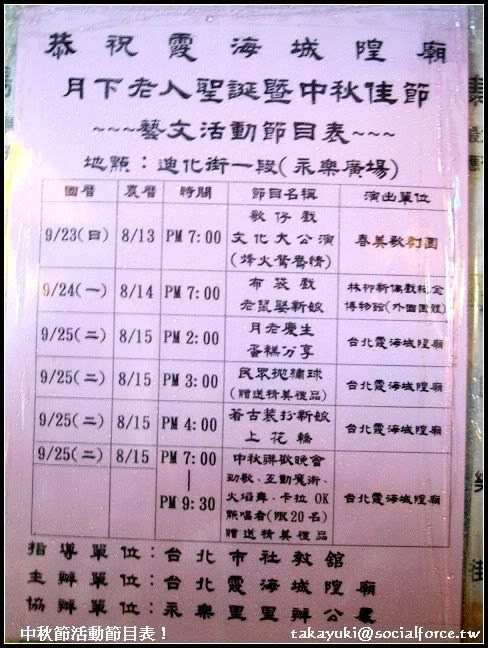 恭祝霞海城隍廟
月下老人聖誕暨中秋佳節
~~~藝文活動節目表~~~
地點：迪化街一段(永樂廣場)
國曆 農曆 時間 節目名稱 演出單位
9/23(日) 8/13 PM 7:00 歌仔戲
文化大公演
(烽火鴛鴦情) 春美歌劇團
9/24(一) 8/14 PM 7:00 布袋戲
老鼠娶新娘 林柳新偶戲紀念
博物館(外國團體)
9/25(二) 8/15 PM 2:00 月老慶生
蛋糕分享 台北霞海城隍廟
9/25(二) 8/15 PM 3:00 民眾拋繡球
(贈送精美禮品) 台北霞海城隍廟
9/25(二) 8/15 PM 4:00 著古裝扮新娘
上花轎 台北霞海城隍廟
9/25(二) 8/15 PM 7:00
|
PM 9:30 中秋聯歡晚會
勁歌、互動魔術、
火焰舞、卡拉OK
點唱者(限20名)
贈送精美禮品 台北霞海城隍廟
指導單位：台北市社教館
主辦單位：台北霞海城隍廟
協辦單位：永樂里里辦公處
中秋節活動節目表！
takayuki@socialforce.tw